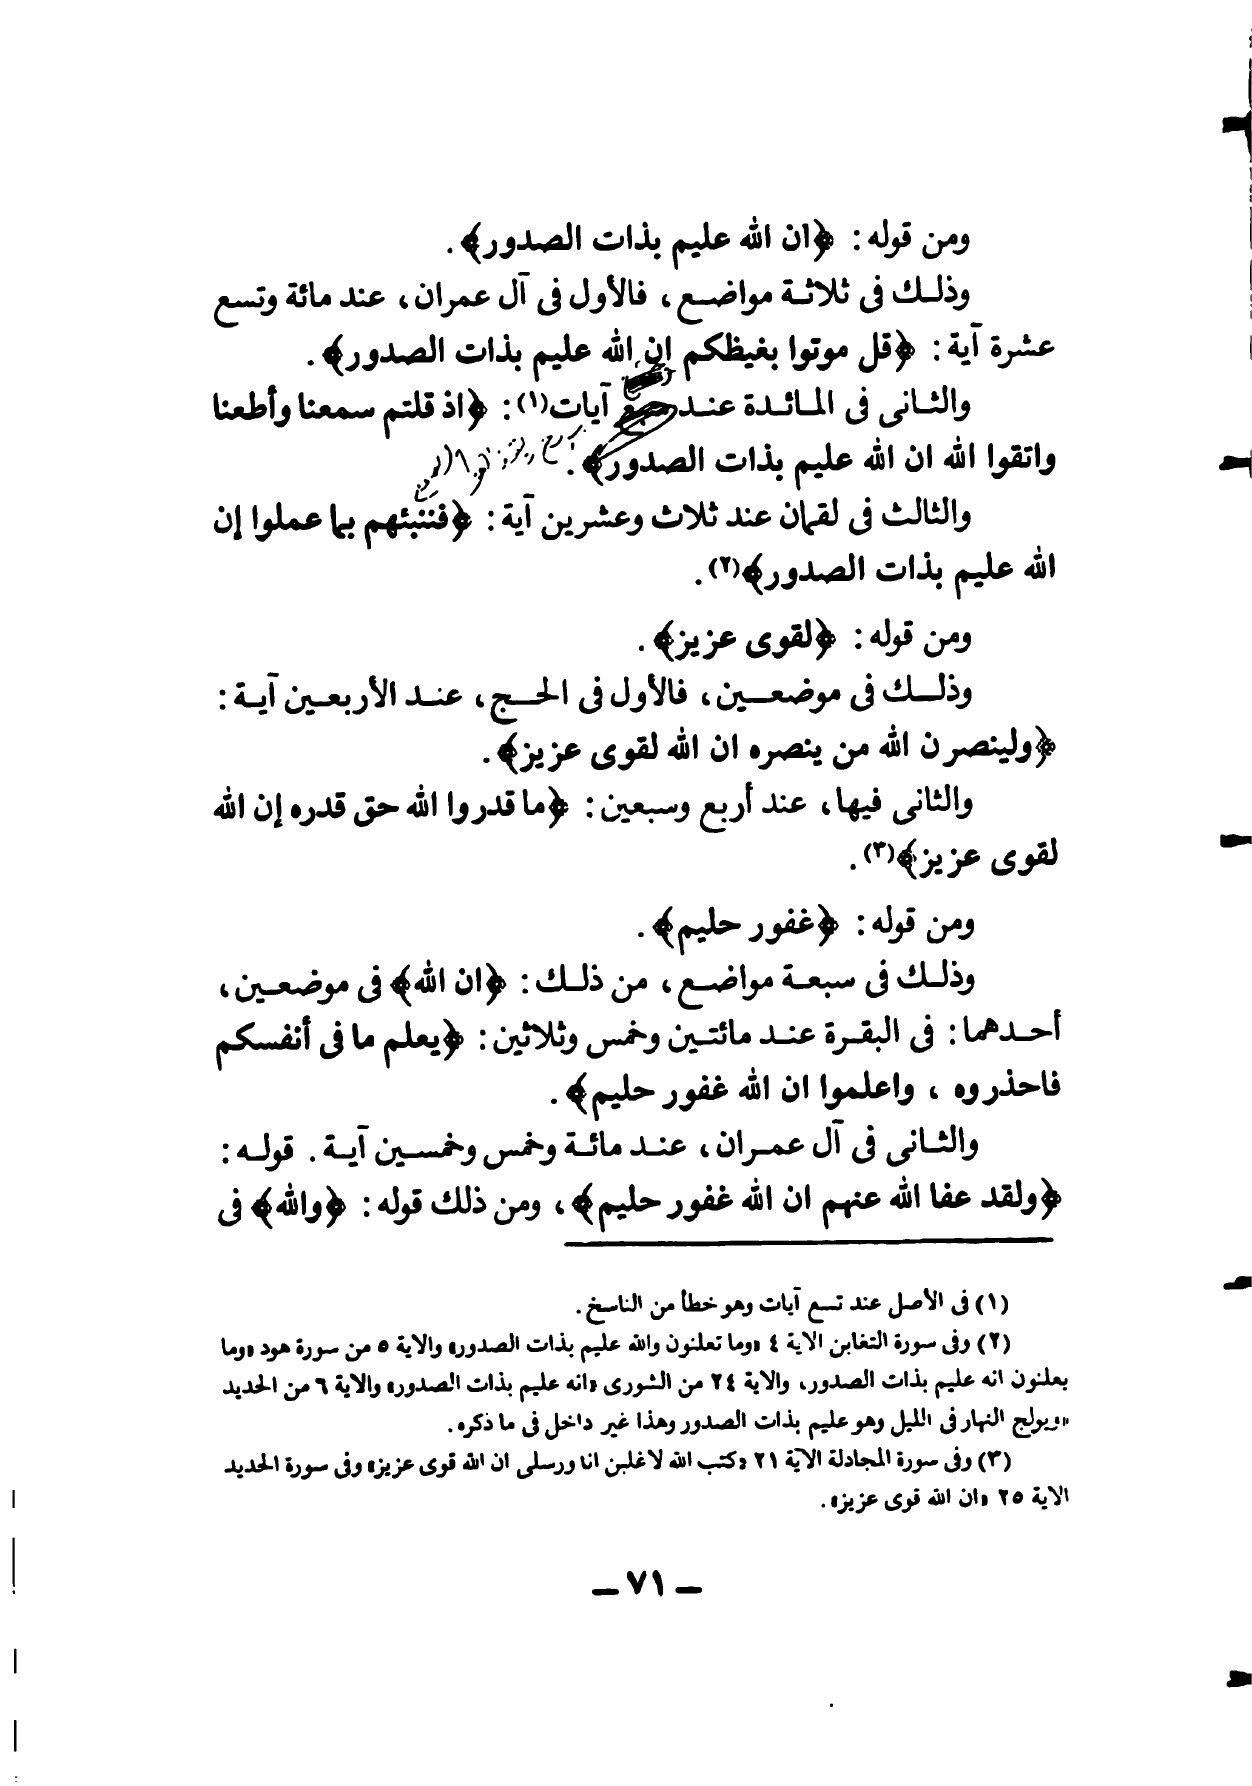 ومن قوله: ﴿ان الله عليم بذات الصدور﴾.
وذلك فى ثلاثة مواضع، فالأول فى آل عمران، عند مائة وتسع
عشرة آية: ﴿قل موتوا بغيظكم ان الله عليم بذات الصدور﴾.
والثانى فى المائدة عند آيات(١): ﴿اذ قلتم سمعنا وأطعنا
واتقوا الله ان الله عليم بذات الصدور﴾.
والثالث فى لقمان عند ثلاث وعشرين آية: ﴿فننبئهم بما عملوا إن
الله عليم بذات الصدور﴾(٢).
ومن قوله: ﴿لقوى عزيز﴾.
وذلك فى موضعين، فالأول فى الحج، عند الأربعين آية:
﴿ولينصرن الله من ينصره ان الله لقوى عزيز﴾.
والثانى فيها، عند أربع وسبعين: ﴿ما قدروا الله حق قدره إن الله
لقوى عزيز﴾(٣).
ومن قوله: ﴿غفور حليم﴾.
وذلك فى سبعة مواضع، من ذلك: ﴿ان الله﴾ فى موضعين،
أحدهما: فى البقرة عند مائتين وخمس وثلاثين: ﴿يعلم ما فى أنفسكم
فاحذروه ، واعلموا ان الله غفور حليم﴾.
والثانى فى آل عمران، عند مائة وخمس وخمسين آية. قوله:
﴿ولقد عفا الله عنهم ان الله غفور حليم﴾، ومن ذلك قوله: ﴿والله﴾ فى
(١) فى الأصل عند تسع آيات وهو خطأ من الناسخ.
(٢) وفى سورة التغابن الاية ٤ «وما تعلنون والله عليم بذات الصدور» والاية ٥ من سورة هود «وما
يعلنون انه عليم بذات الصدور، والاية ٢٤ من الشورى «انه عليم بذات الصدور» والاية ٦ من الحديد
«ويولج النهار فى الليل وهو عليم بذات الصدور وهذا غير داخل فى ما ذكره.
(٣) وفى سورة المجادلة الآية ٢١ «كتب الله لاغلبن انا ورسلى ان الله قوى عزيز» وفى سورة الحديد
الاية ٢٥ «ان الله قوى عزيز».
– ٧١ –